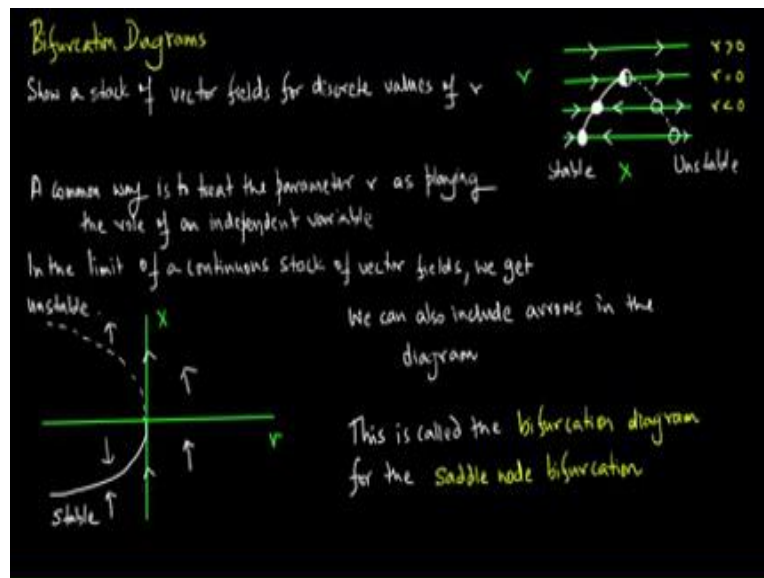 Bifurcation Diagrams
Show a stack of vector fields for discrete values of r
r
r>0
r=0
r<0
Stable
X
Unstable
A common way is to treat the parameter r as playing
the role of an independent variable
In the limit of a continuous stack of vector fields, we get
unstable
X
r
stable
We can also include arrows in the
diagram
This is called the bifurcation diagram
for the saddle node bifurcation